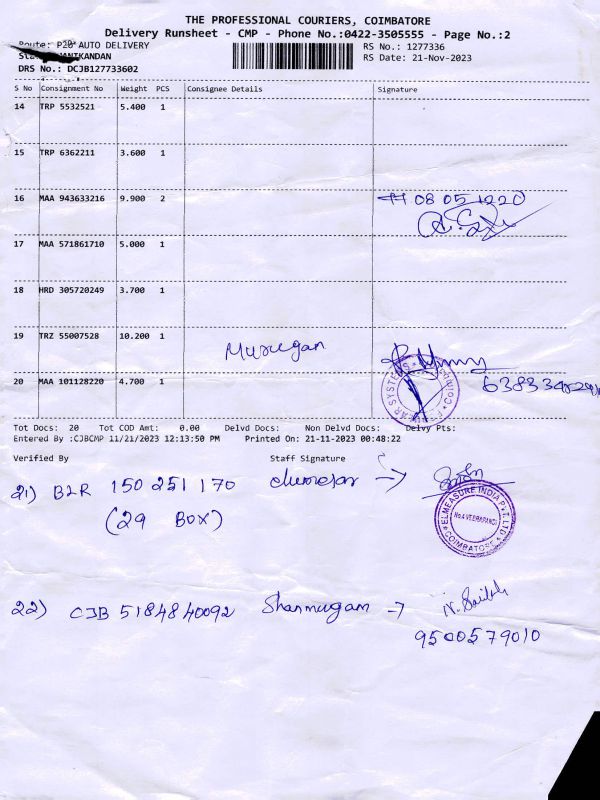 THE PROFESSIONAL COURIERS, COIMBATORE
Delivery Runsheet - CMP - Phone No.:0422-3505555 - Page No.:2
Route: P20 AUTO DELIVERY
RS No.: 1277336
RS Date: 21-Nov-2023
DRS No.: DCJB127733602
S No Consignment No Weight PCS Consignee Details Signature
14 TRP 5532521 5.400 1
15 TRP 6362211 3.600 1
16 MAA 943633216 9.900 2
17 MAA 571861710 5.000 1
18 HRD 305720249 3.700 1
19 TRZ 55007528 10.200 1 Murugan
20 MAA 101128220 4.700 1
Tot Docs: 20 Tot COD Amt: 0.00 Delvd Docs: Non Delvd Docs: Delvy Pts:
Entered By :CJBCMP 11/21/2023 12:13:50 PM Printed On: 21-11-2023 00:48:22
Verified By Staff Signature
21) BLR 150 251 170
(29 BOX)
ELMEASURE INDIA PVT. LTD
No.4 VEERAPANDI
COIMBATORE
22) CJB 5184840092 Shanmugam
9500579010